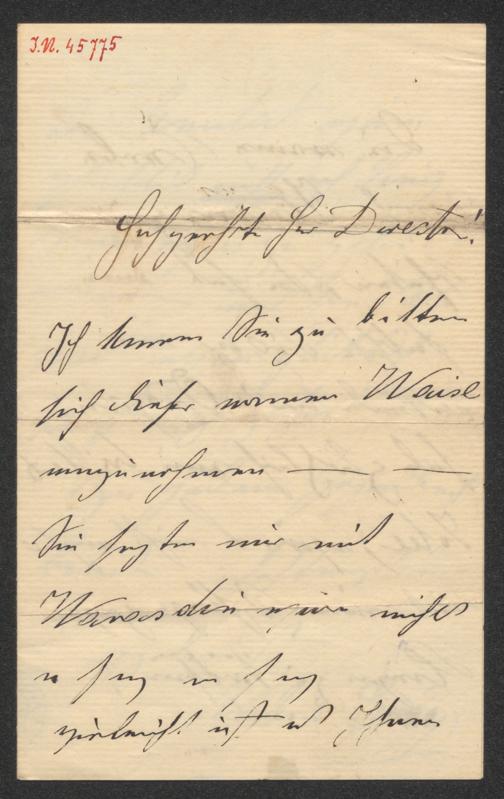 J.N. 45775
Hochgeehrter Herr Director!
Ich komme Sie zu bitten
sich dieser armen Waise
anzunehmen — —
Sie sagten mir mit
Warasdin wäre nichts
vieleicht ist es Ihnen